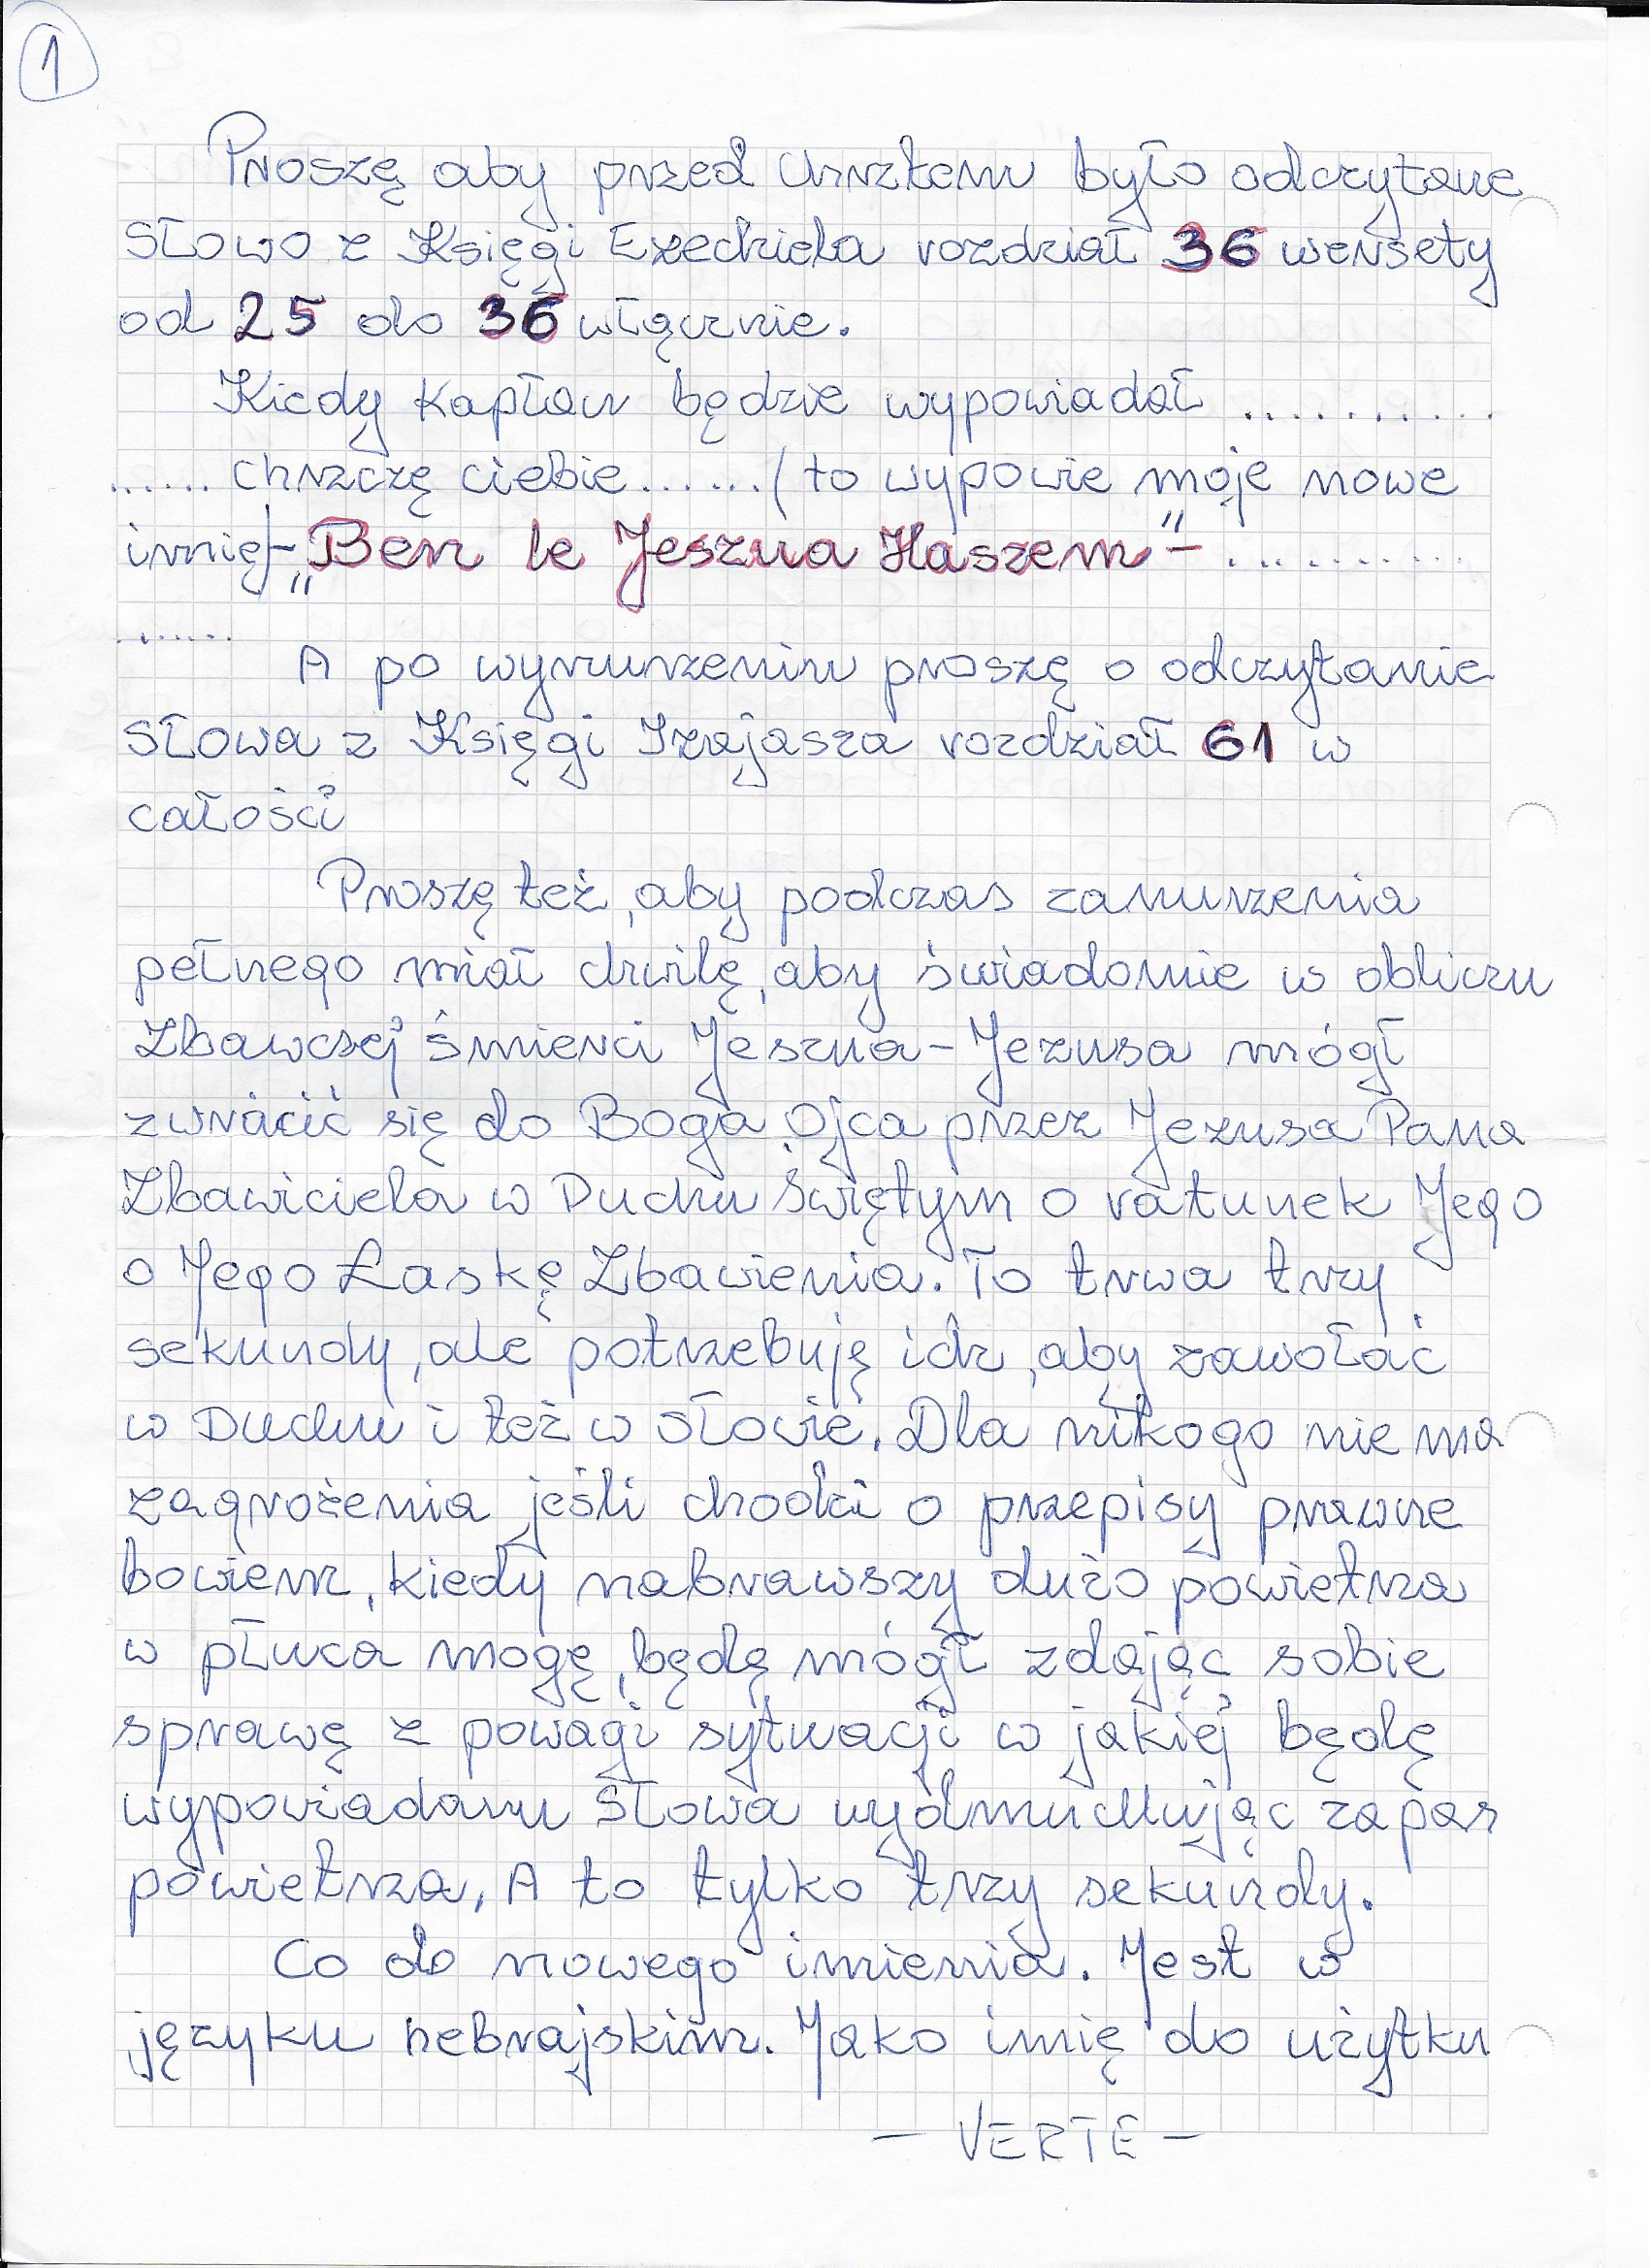 1
Proszę aby przed Chrztem było odczytane
Słowo z Księgi Ezechiela rozdział 36 wersety
od 25 do 36 włącznie.
Kiedy Kapłan będzie wypowiadał ..........
...... chrzczę ciebie......(to wypowie moje nowe
imię)-„Ben le Jeszua Haszem"- ..........
.......
A po wynurzeniu proszę o odczytanie
Słowa z Księgi Izajasza rozdział 61 w
całości
Proszę też, aby podczas zanurzenia
pełnego miał chwilę, aby świadomie w obliczu
Zbawczej śmierci Jeszua-Jezusa mógł
zwrócić się do Boga Ojca przez Jezusa Pana
Zbawiciela w Duchu Świętym o ratunek Jego
o Jego Łaskę Zbawienia. To trwa trzy
sekundy, ale potrzebuję ich, aby zawołać
w Duchu i też w Słowie. Dla nikogo nie ma
zagrożenia jeśli chodzi o przepisy prawne
bowiem, kiedy nabrawszy dużo powietrza
w płuca mogę, będę mógł zdając sobie
sprawę z powagi sytuacji w jakiej będę
wypowiadam Słowa wydmuchując zapas
powietrza, A to tylko trzy sekundy.
Co do nowego imienia. Jest w
języku hebrajskim. Jako imię do użytku
- VERTE -